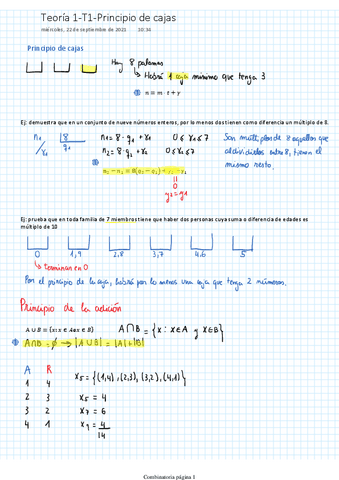 Teoría 1-T1-Principio de cajas
miércoles, 22 de septiembre de 2021 10:34
Principio de cajas
Hay 8 palomas
↳ Habrá 1 caja mínimo que tenga 3
n = m · t + y
Ej: demuestra que en un conjunto de nueve números enteros, por lo menos dos tienen como diferencia un multiplo de 8.
n₁ | 8
r₁ q₁
n₁ = 8 · q₁ + r₁ 0 ≤ r₁ ≤ 7
n₂ = 8 · q₂ + r₂ 0 ≤ r₂ ≤ 7
Son múltiplos de 8 aquellos que al dividirlos entre 8, tienen el mismo resto.
n₁ − n₂ = 8(q₁ − q₂) + r₁ − r₂
0
r₂ = r₁
Ej: prueba que en toda familia de 7 miembros tiene que haber dos personas cuya suma o diferencia de edades es múltiplo de 10
0 1,9 2,8 3,7 4,6 5
↳ terminan en 0
Por el principio de la caja, habrá por lo menos una caja que tenga 2 números.
Principio de la adición
A ∪ B = {x: x ∈ A o x ∈ B} A∩B = {x : x∈A y x∈B}
A∩B = ∅ → |A∪B| = |A|+|B|
A R
1 4
2 3
3 2
4 1
x₅ = {(1,4), (2,3), (3,2), (4,1)}
x₅ = 4
x₇ = 6
x₉ = 4
14
Combinatoria página 1